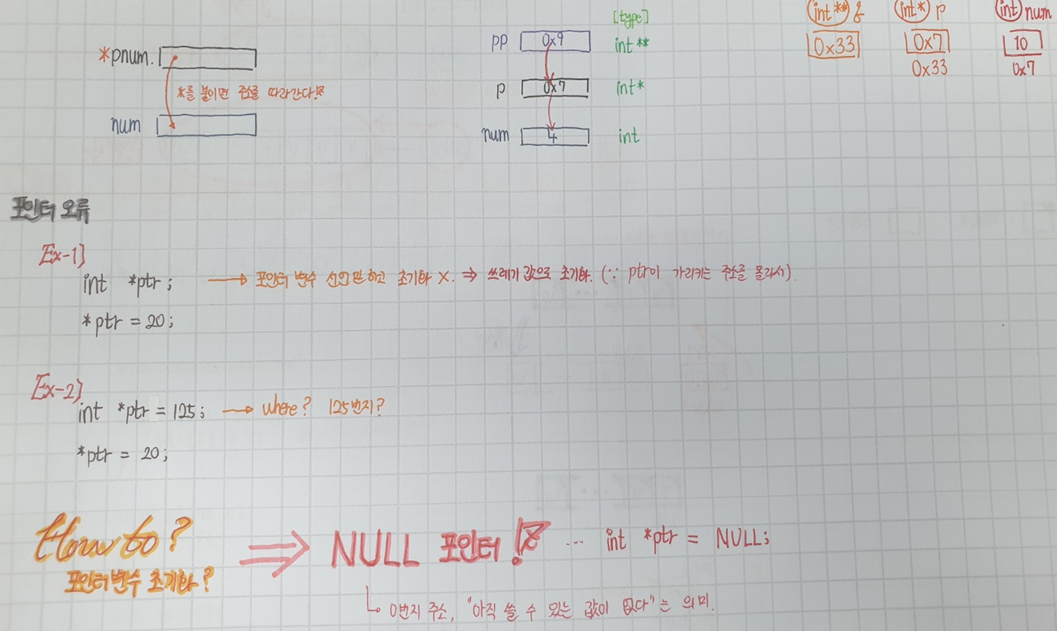 *pnum.
*를 붙이면 주소를 따라간다!
num
[type]
pp 0x9 int **
p 0x7 int*
num 4 int
int** & int* p int num
0x33 0x7 10
0x33 0x7
포인터 오류
Ex-1]
int *ptr; → 포인터 변수 선언만하고 초기화 X. ⇒ 쓰레기 값으로 초기화. (∵ ptr이 가리키는 주소를 몰라서)
*ptr = 20;
Ex-2]
int *ptr = 125; → where? 125번지?
*ptr = 20;
How to? ⇒ NULL 포인터! ... int *ptr = NULL;
포인터변수 초기화?
0번지 주소, "아직 쓸 수 있는 값이 없다"는 의미.